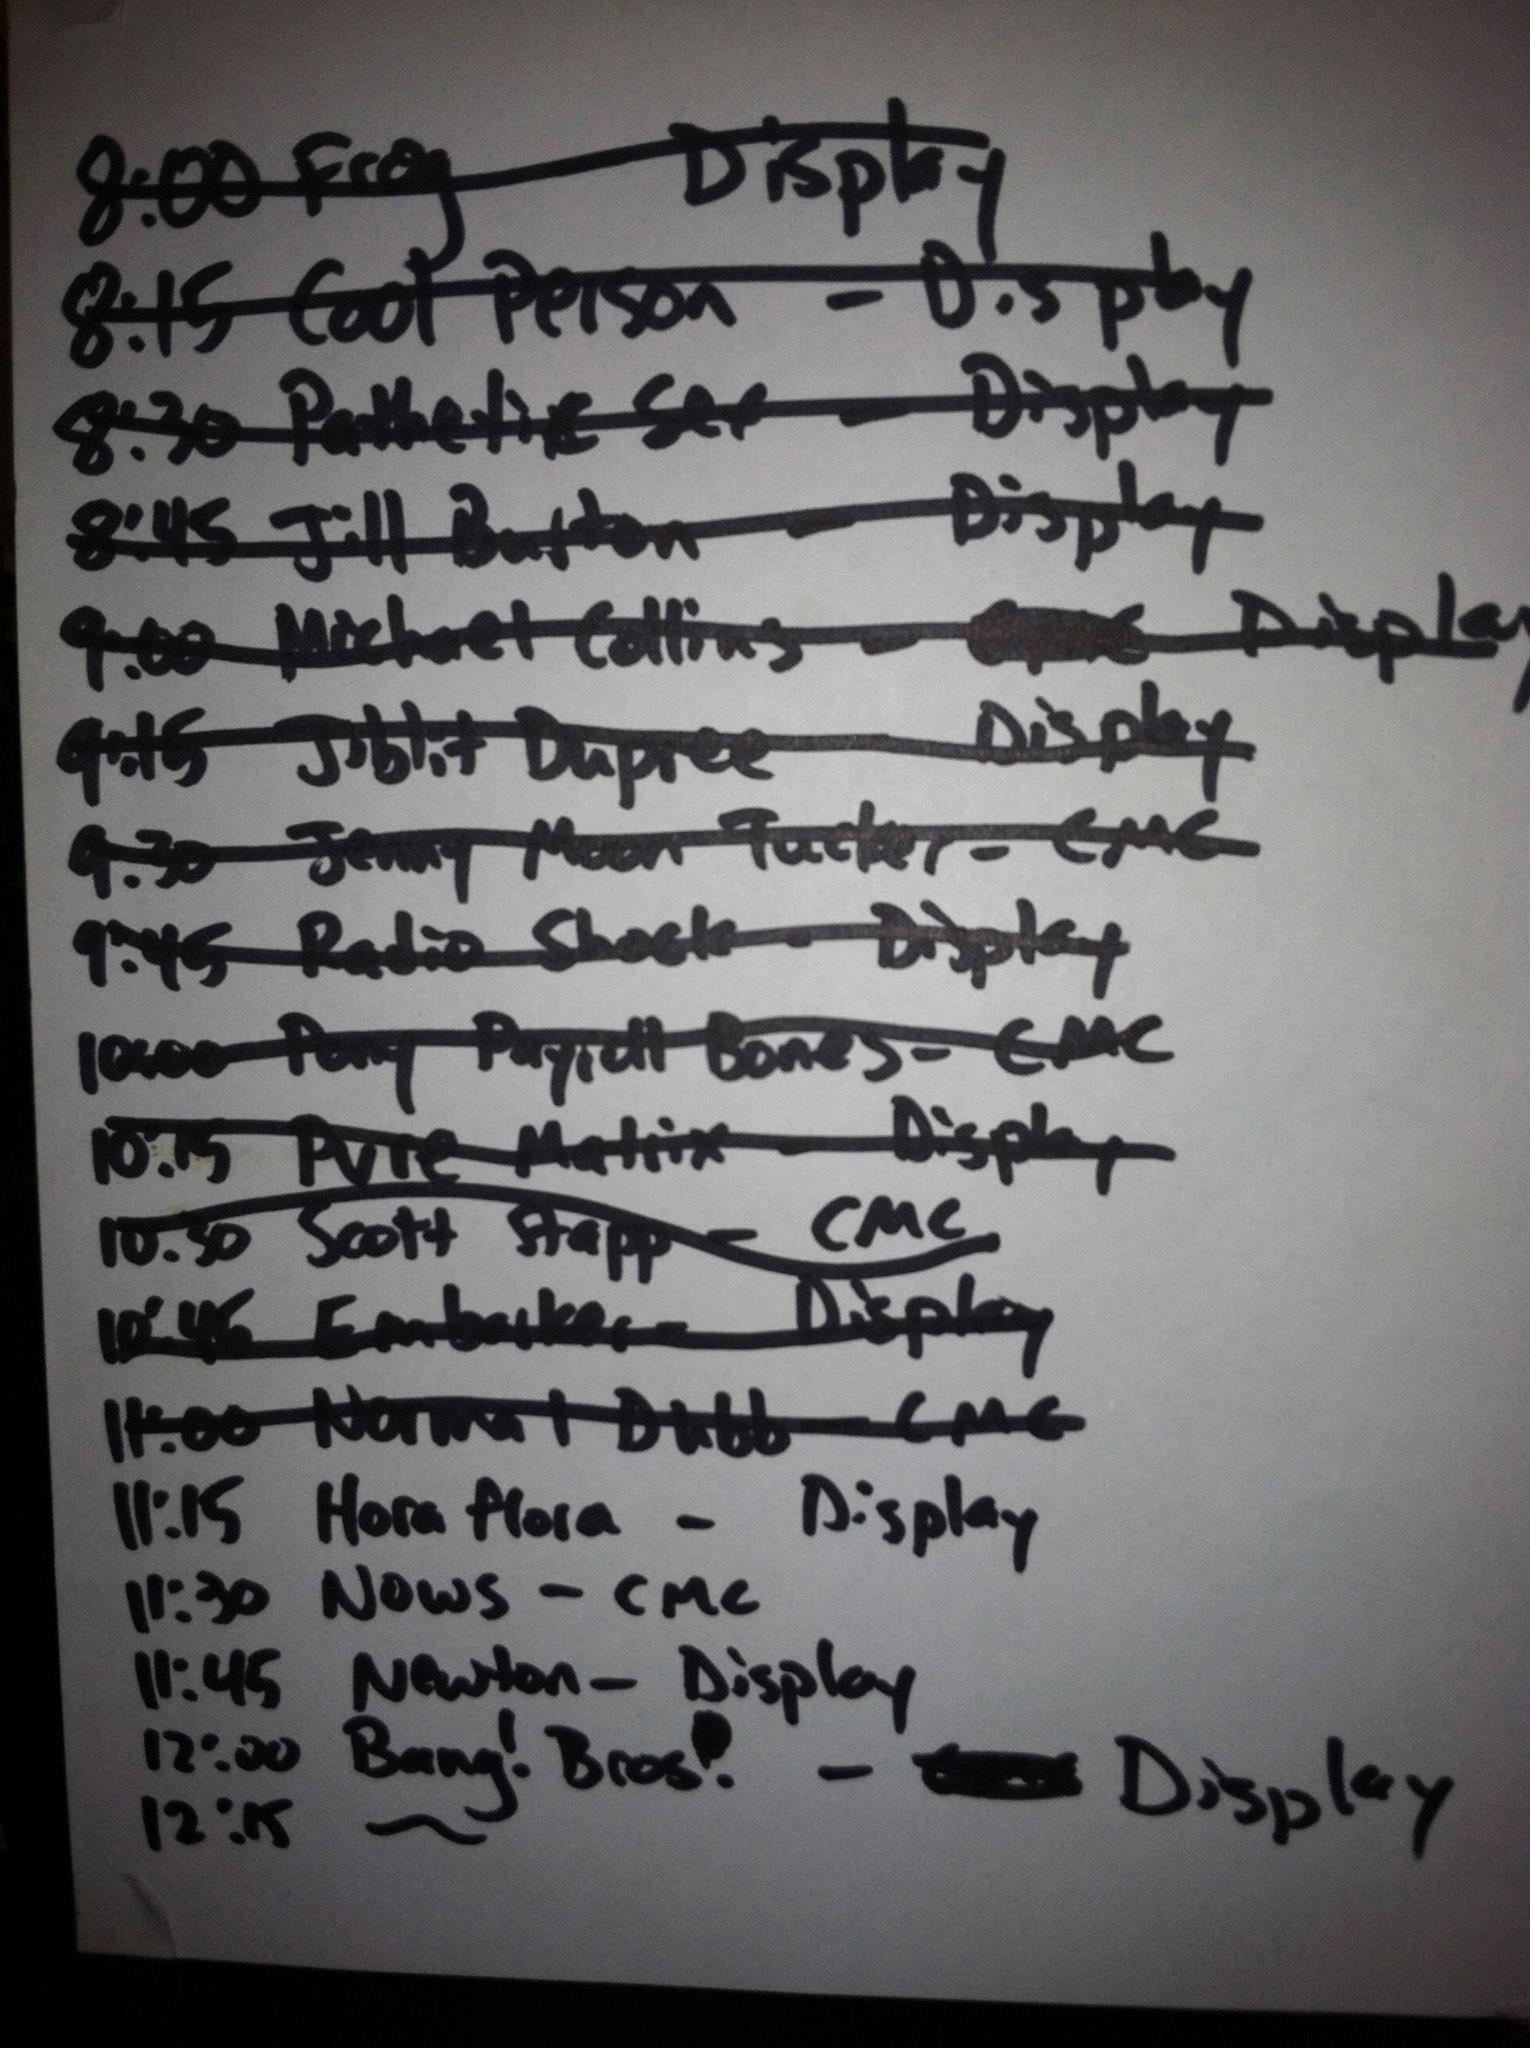 8:00 Frog Display
8:15 Cool Person - Display
8:30 Pathetic Set - Display
8:45 Jill Burton - Display
9:00 Michael Collins - Display
9:15 Jiblit Dupree Display
9:30 Jenny Moon Tucker - CMC
9:45 Radio Shock - Display
10:00 Pony Payroll Bones - CMC
10:15 Pyre Matrix - Display
10:30 Scott Stapp - CMC
10:45 Embarker - Display
11:00 Normal Dubb - CMC
11:15 Hora flora - Display
11:30 Nows - CMC
11:45 Newton - Display
12:00 Bang! Bros! - Display
12:15 ~